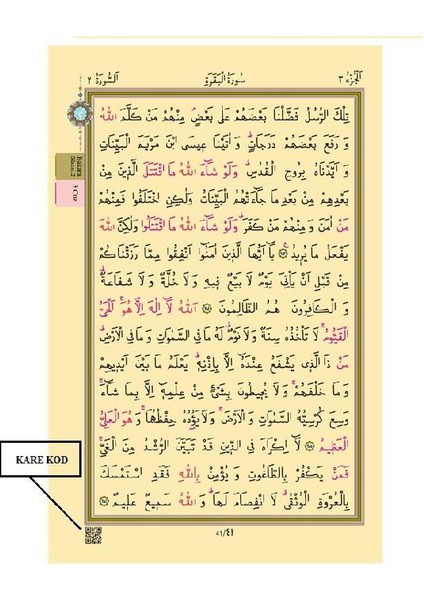 الجزء ٣
سورة البقرة
السورة ٢
تِلْكَ الرُّسُلُ فَضَّلْنَا بَعْضَهُمْ عَلٰى بَعْضٍ مِنْهُمْ مَنْ كَلَّمَ اللّٰهُ
وَ رَفَعَ بَعْضَهُمْ دَرَجَاتٍ وَ اٰتَيْنَا عِيسَى ابْنَ مَرْيَمَ الْبَيِّنَاتِ
وَ اَيَّدْنَاهُ بِرُوحِ الْقُدُسِ وَلَوْ شَاءَ اللّٰهُ مَا اقْتَتَلَ الَّذِينَ مِنْ
بَعْدِهِمْ مِنْ بَعْدِ مَا جَاءَتْهُمُ الْبَيِّنَاتُ وَلٰكِنِ اخْتَلَفُوا فَمِنْهُمْ
مَنْ اٰمَنَ وَ مِنْهُمْ مَنْ كَفَرَ وَلَوْ شَاءَ اللّٰهُ مَا اقْتَتَلُوا وَلٰكِنَّ اللّٰهَ
يَفْعَلُ مَا يُرِيدُ يَا اَيُّهَا الَّذِينَ اٰمَنُوا اَنْفِقُوا مِمَّا رَزَقْنَاكُمْ
مِنْ قَبْلِ اَنْ يَأْتِيَ يَوْمٌ لَا بَيْعٌ فِيهِ وَ لَا خُلَّةٌ وَ لَا شَفَاعَةٌ
وَ الْكَافِرُونَ هُمُ الظَّالِمُونَ اَللّٰهُ لَا اِلٰهَ اِلَّا هُوَ اَلْحَيُّ
الْقَيُّومُ لَا تَأْخُذُهُ سِنَةٌ وَلَا نَوْمٌ لَهُ مَا فِي السَّمٰوَاتِ وَمَا فِي الْاَرْضِ
مَنْ ذَا الَّذِي يَشْفَعُ عِنْدَهُ اِلَّا بِاِذْنِهِ يَعْلَمُ مَا بَيْنَ اَيْدِيهِمْ
وَ مَا خَلْفَهُمْ وَ لَا يُحِيطُونَ بِشَيْءٍ مِنْ عِلْمِهِ اِلَّا بِمَا شَاءَ
وَسِعَ كُرْسِيُّهُ السَّمٰوَاتِ وَ الْاَرْضَ وَ لَا يَؤُدُهُ حِفْظُهُمَا وَ هُوَ الْعَلِيُّ
الْعَظِيمُ لَا اِكْرَاهَ فِي الدِّينِ قَدْ تَبَيَّنَ الرُّشْدُ مِنَ الْغَيِّ
فَمَنْ يَكْفُرْ بِالطَّاغُوتِ وَ يُؤْمِنْ بِاللّٰهِ فَقَدِ اسْتَمْسَكَ
بِالْعُرْوَةِ الْوُثْقٰى لَا انْفِصَامَ لَهَا وَ اللّٰهُ سَمِيعٌ عَلِيمٌ
3.Cüz
KARE KOD
41/٤١